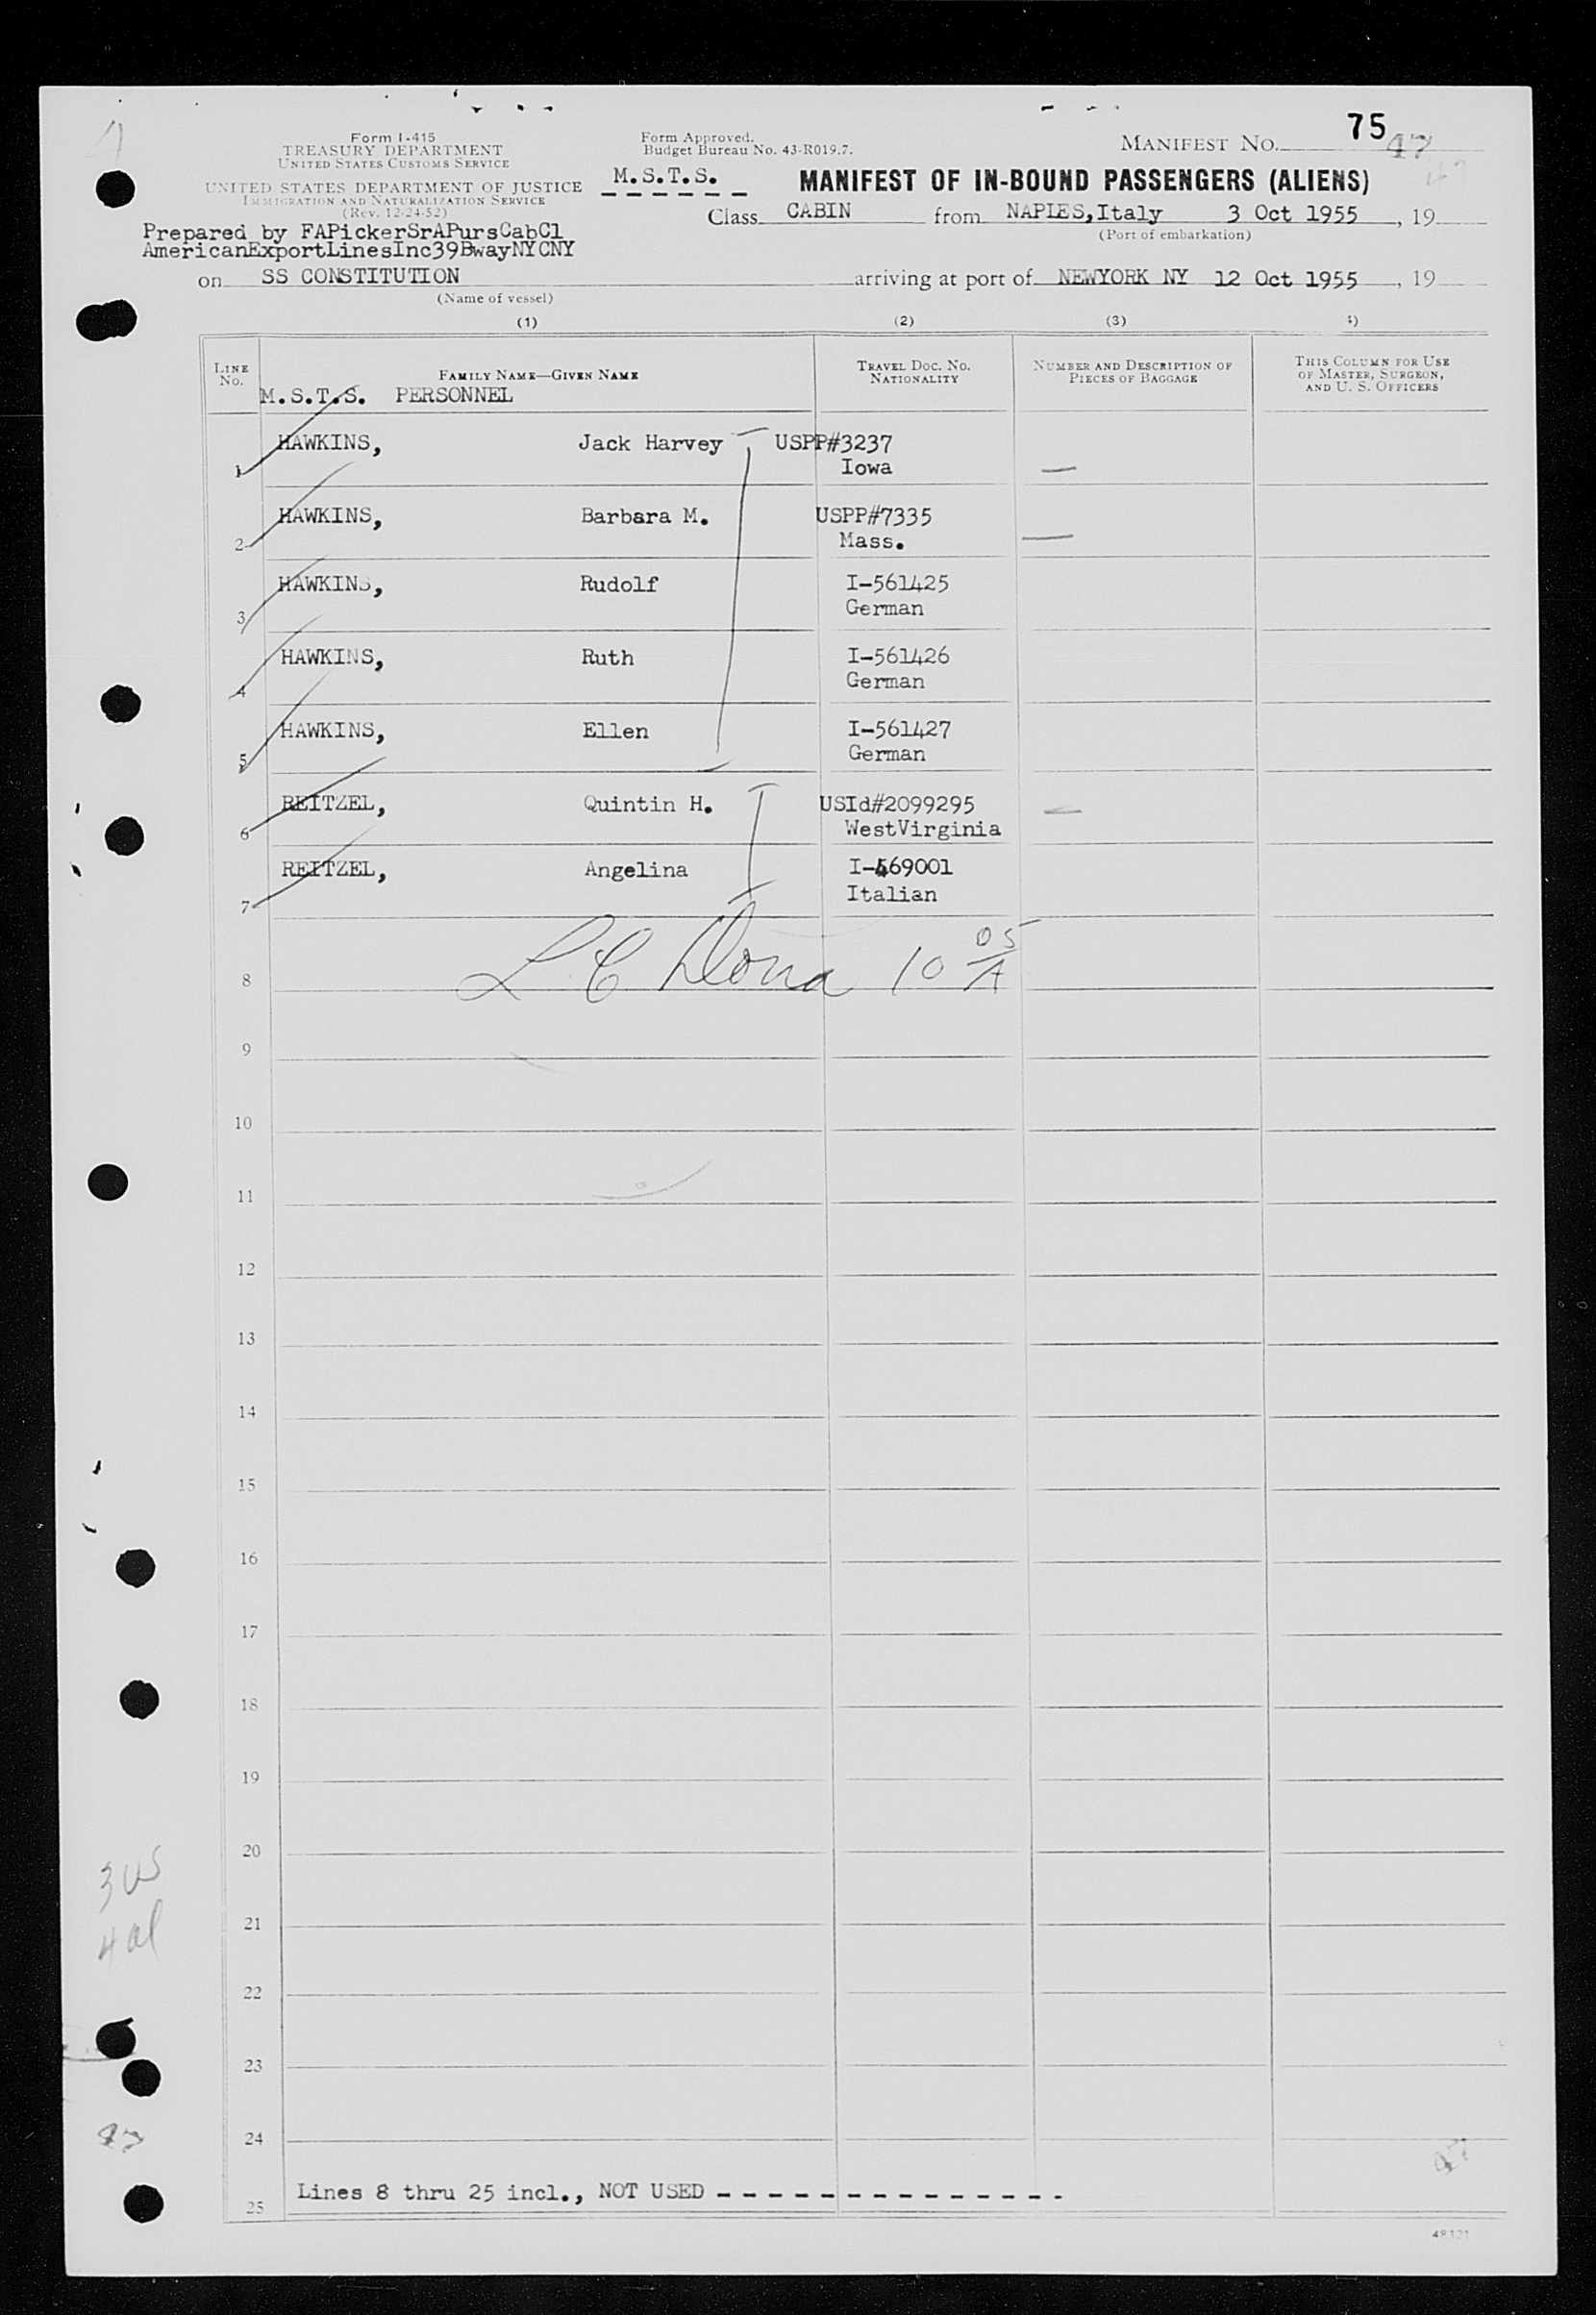 Form I-415
TREASURY DEPARTMENT
UNITED STATES CUSTOMS SERVICE
UNITED STATES DEPARTMENT OF JUSTICE
IMMIGRATION AND NATURALIZATION SERVICE
(Rev. 12-24-52)
Form Approved.
Budget Bureau No. 43-R019.7.
M.S.T.S.
MANIFEST NO. 75 47
MANIFEST OF IN-BOUND PASSENGERS (ALIENS)
Class CABIN from NAPLES,Italy 3 Oct 1955, 19
(Port of embarkation)
Prepared by FAPickerSrAPursCabCl
AmericanExportLinesInc39BwayNYCNY
on SS CONSTITUTION arriving at port of NEWYORK NY 12 Oct 1955, 19
(Name of vessel)
(1) (2) (3) 4)
LINE NO. FAMILY NAME—GIVEN NAME TRAVEL DOC. NO. NATIONALITY NUMBER AND DESCRIPTION OF PIECES OF BAGGAGE THIS COLUMN FOR USE OF MASTER, SURGEON, AND U. S. OFFICERS
M.S.T.S. PERSONNEL
1 HAWKINS, Jack Harvey USPP#3237
Iowa
2 HAWKINS, Barbara M. USPP#7335
Mass.
3 HAWKINS, Rudolf I-561425
German
4 HAWKINS, Ruth I-561426
German
5 HAWKINS, Ellen I-561427
German
6 REITZEL, Quintin H. USId#2099295
WestVirginia
7 REITZEL, Angelina I-469001
Italian
8 10 05/A
9
10
11
12
13
14
15
16
17
18
19
20
3 US
21
4 al
22
23
24
47
25 Lines 8 thru 25 incl., NOT USED - - - - - - - - - - - - - -